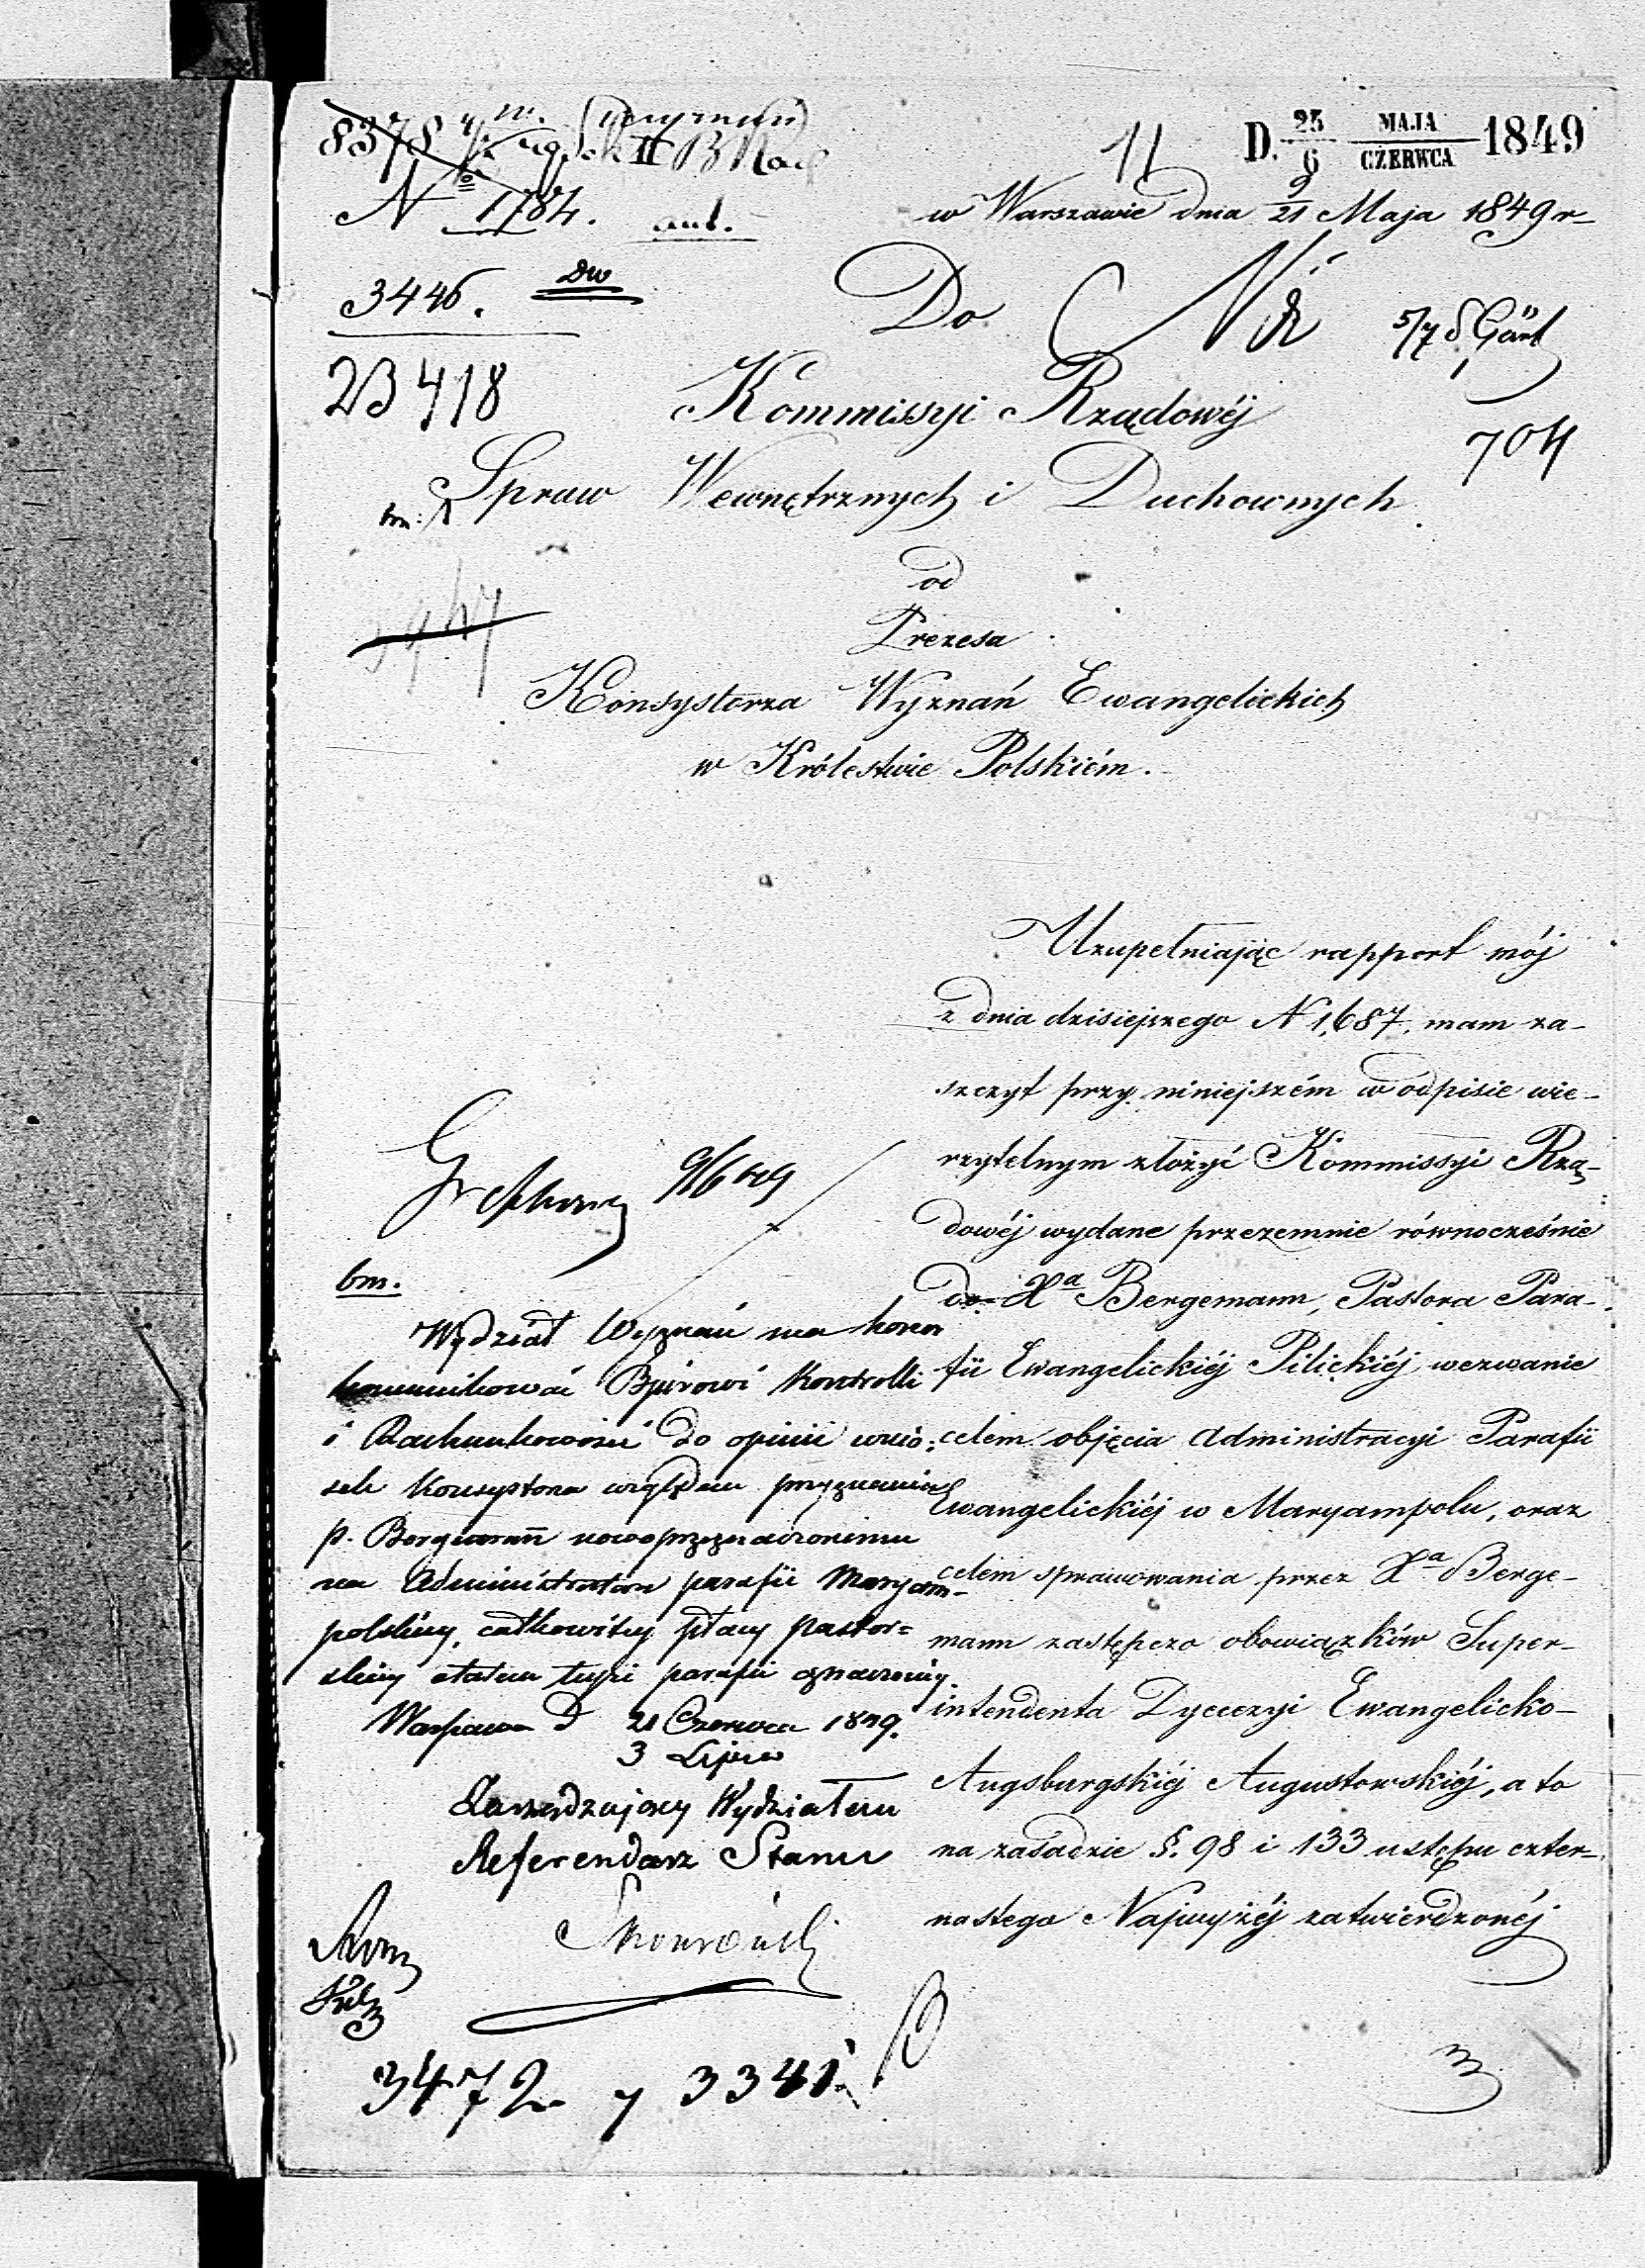 8378
D. 25/6 MAJA/CZERWCA 1849
No 1784.
w Warszawie dnia 9/21 Maja 1849 r
3446.
Do
23418
Kommissyi Rządowéj
704
Spraw Wewnętrznych i Duchownych
od
Prezesa
Konsystorza Wyznań Ewangelickich
w Królestwie Polskiém.
Uzupełniając rapport mój
z dnia dzisiejszego N 1,687, mam za-
szczyt przy niniejszém w odpisie wie-
rzytelnym złożyć Kommissyi Rzą-
dowéj wydane przezemnie równocześnie
do Xa Bergemann, Pastora Para-
fii Ewangelickiéj Pilickiéj wezwanie
celem objęcia Administracyi Parafii
Ewangelickiéj w Maryampolu, oraz
celem sprawowania przez Xa Berge-
mann zastępczo obowiązków Super-
intendenta Dyecezyi Ewangelicko-
Augsburgskiéj Augustowskiéj, a to
na zasadzie §. 98 i 133 ustępu czter-
nastego Najwyżéj zatwierdzonéj
9/6 49
bm.
Wydział Wyznań ma honor
kommunikować Bjórowi Kontrolli
i Rachunkowości do opinii wnio-
sek Konsystorza względem przyznania
p. Bergemann nowoprzeznaczonemu
na Administratora parafii Maryam-
polskiéj, całkowitéj płacy pastor=
skiéj etatem tejże parafii oznaczonéj.
Warszawa D 21 Czerwca 1849.
3 Lipca
Zawiadzający Wydziałem
Referendarz Stanu
3472 3341